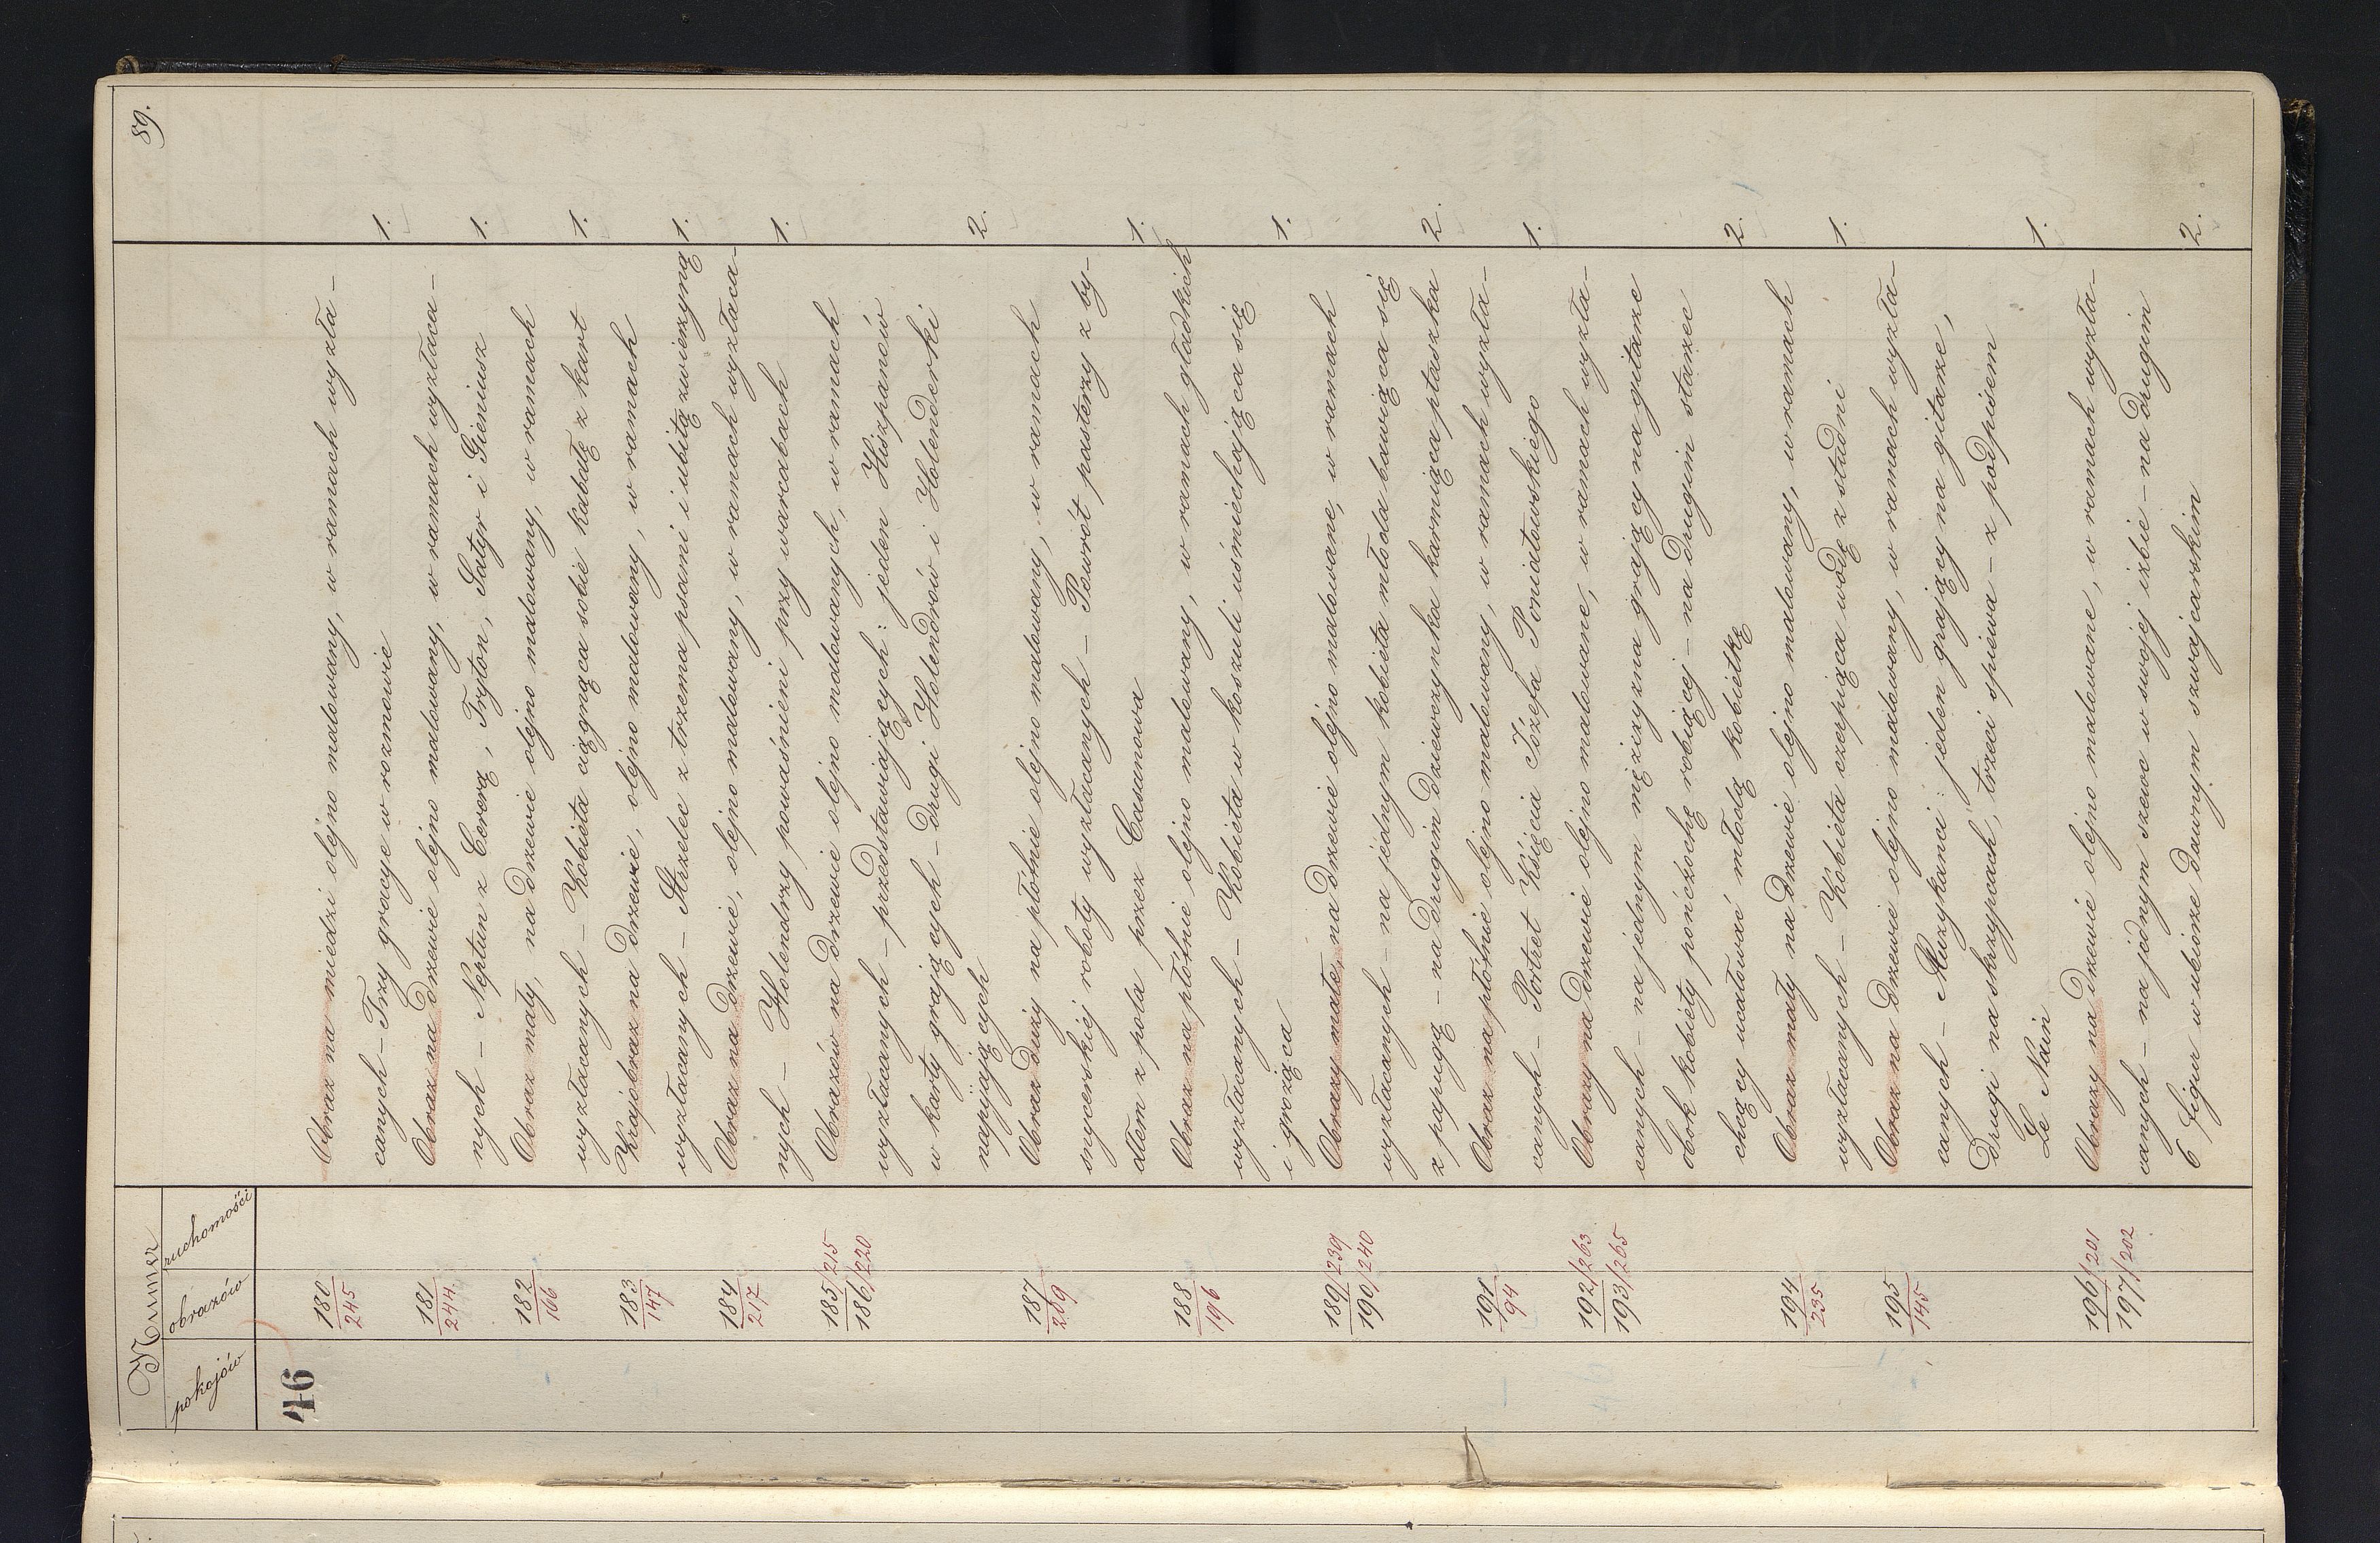 89.
Numer
pokojów obrazów ruchomości
46
180/245 Obraz na miedzi olejno malowany, w ramach wyzła-
canych – Trzy gracye w rozmowie 1.
181/244 Obraz na drzewie olejno malowany, w ramach wyzłaca-
nych – Neptun z Cererą, Tryton, Satyr i Gieniusz 1.
182/166 Obraz mały, na drzewie olejno malowany, w ramach
wyzłacanych – Kobieta ciągnąca sobie kabałę z kart 1.
183/147 Krajobraz na drzewie, olejno malowany, w ramach
wyzłacanych – Strzelec z trzema psami i ubitą zwierzyną 1.
184/217 Obraz na drzewie, olejno malowany, w ramach wyzłaca-
nych – Holendrzy powaśnieni przy warcabach 1.
185/215 Obrazów na drzewie olejno malowanych, w ramach
186/220 wyzłacanych – przedstawiających: jeden Hiszpanów
w karty grających – drugi Holendrów i Holenderki
napijających 2.
187/289 Obraz duży na płótnie olejno malowany, w ramach
snycerskiéj roboty wyzłacanych – Powrót pasterzy z by-
dłem z pola przez Casanowa 1.
188/196 Obraz na płótnie olejno malowany, w ramach gładkich
wyzłacanych – Kobieta w koszuli uśmiechająca się
i grożąca 1.
189/239 Obrazy małe, na drzewie olejno malowane, w ramach
190/240 wyzłacanych – na jednym kobieta młoda bawiąca się
z papugą – na drugim dziewczynka karmiąca ptaszka 2.
191/94 Obraz na płótnie olejno malowany, w ramach wyzła-
canych – Portret Księcia Józefa Poniatowskiego 1.
192/263 Obrazy na drzewie olejno malowane, w ramach wyzła-
193/265 canych – na jednym mężczyzna grający na gitarze
obok kobiety pończochę robiącej – na drugim starzec
chcący ucałować młodą kobietkę 2.
194/235 Obraz mały na drzewie olejno malowany, w ramach
wyzłacanych – Kobieta czerpiąca wodę z studni 1.
195/145 Obraz na drzewie olejno malowany, w ramach wyzła-
canych – Muzykanci: jeden grający na gitarze,
drugi na skrzypcach, trzeci spiewa – z podpisem
Le Nain 1.
196/201 Obrazy na drzewie olejno malowane, w ramach wyzła-
197/202 canych – na jednym szewc w swojej izbie – na drugim
6 figur w ubiorze dawnym szwajcarskim 2.